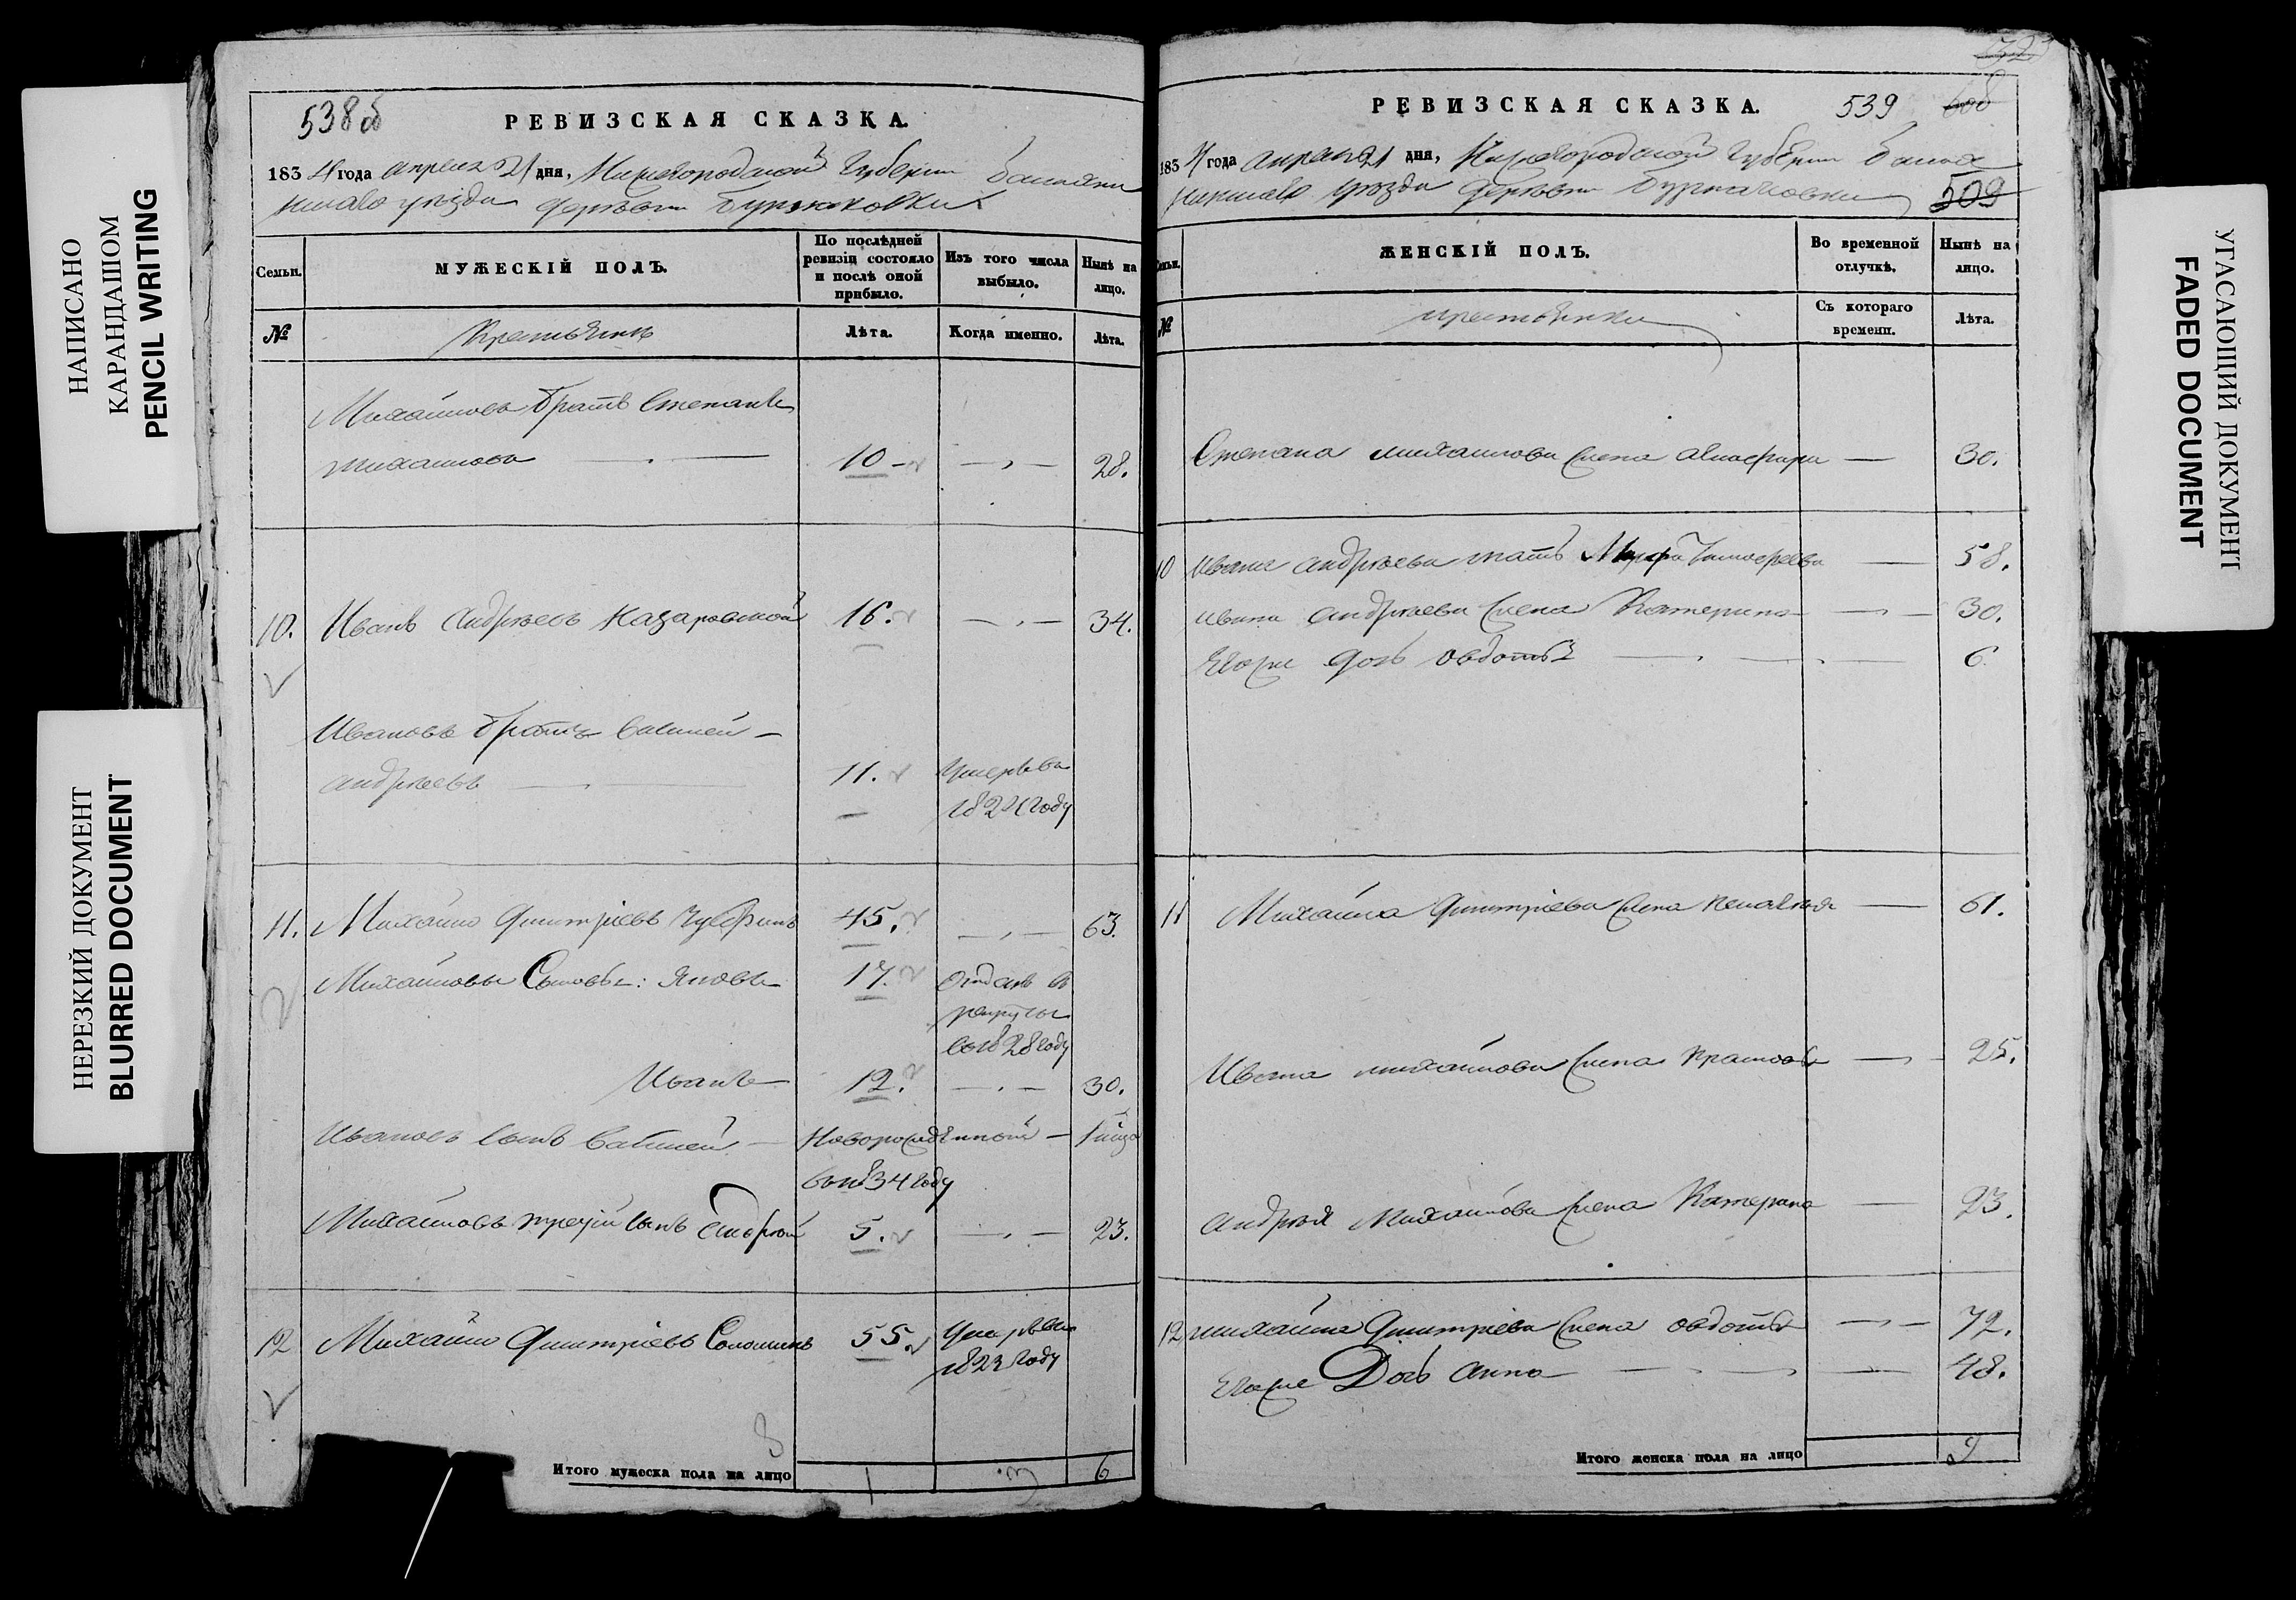 НАПИСАНО
КАРАНДАШОМ
PENCIL WRITING
НЕРЕЗКИЙ ДОКУМЕНТ
BLURRED DOCUMENT
538об
РЕВИЗСКАЯ СКАЗКА.
1834 года апреля 21 дня, Нижегородской Губернии
уезда деревни
Семьи.
МУЖЕСКІЙ ПОЛЪ.
По послѣдней ревизіи состояло и послѣ оной прибыло.
Изъ того числа выбыло.
Нынѣ на лицо.
№
Крестьяне
Лѣта.
Когда именно.
Лѣта.
Михайловъ братъ Степанъ
Михайловъ 10 28.
10. Иванъ Андреевъ 16. 34.
Ивановъ братъ Василей
Андреевъ 11. Умеръ въ
году
11. Михайло Дмитріевъ 45. 63.
Михайловы Сыновья: Яковъ 17. Отданъ в
рекруты
въ 1828 году
Иванъ 12. 30.
Ивановъ сынъ Василей Новорожденной
въ 1834 году
Михайловъ третій сынъ Андрей 5. 23.
12 Михайло Дмитріевъ 55. Умеръ въ
году
8
Итого мужеска пола на лицо 1 3 6
723
РЕВИЗСКАЯ СКАЗКА. 539 608
1834 года апреля 21 дня, Нижегородской Губернии
уезда деревни 509
Семьи.
ЖЕНСКІЙ ПОЛЪ.
Во временной отлучкѣ.
Нынѣ на лицо.
№
крестьянки
Съ котораго времени.
Лѣта.
Степана Михайлова жена 30.
10 Ивана Андреева мать Тимофеева 58.
Ивана Андреева жена Катерина 30.
Егоже дочь Овдотья 6
11 Михайла Дмитріева жена Пелагея 61.
Ивана Михайлова жена 25.
Андрея Михайлова жена Катерина 23.
12 Михайла Дмитріева жена Овдотья 72.
Егоже Дочь Анна 48.
Итого женска пола на лицо 9
УГАСАЮЩИЙ ДОКУМЕНТ
FADED DOCUMENT